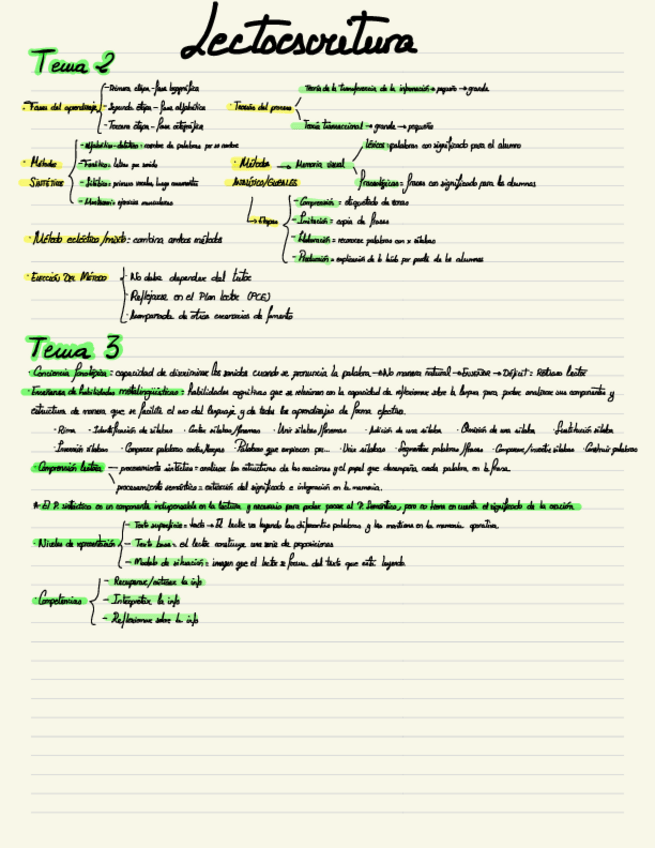 Lectoescritura
Tema 2
· Fases del aprendizaje
- Primera etapa - fase logográfica
- Segunda etapa - fase alfabética
- Tercera etapa - fase ortográfica
· Teorías del proceso
Teoría de la transferencia de la información → pequeño → grande
Teoría transaccional → grande → pequeño
· Métodos SINTÉTICOS
- Alfabético - : nombre de palabras por su nombre
- Fonético: letras por sonido
- Silábico: primero vocales, luego consonantes
· Métodos ANALÍTICO/GLOBALES → Memoria visual
léxicos: palabras con significado para el alumno
fraseológicos = frases con significado para los alumnos
→ Etapas
- Comprensión = etiquetado de
- Imitación = copia de frases
- Elaboración = reconocer palabras con x sílabas
- Producción = explicación de lo leído por parte de los alumnos
· Método ecléctico/mixto: combina ambos métodos
· ELECCIÓN DEL MÉTODO
- No debe depender del tutor
- Reflejarse en el Plan lector (PCE)
- Acompañado de otros escenarios de fomento
Tema 3
· Conciencia fonológica: capacidad de discriminar los sonidos cuando se pronuncia la palabra → No manera natural → ENSEÑAR → DÉFICIT: Retraso lector
· Enseñanza de habilidades metalingüísticas: habilidades cognitivas que se relacionan con la capacidad de reflexionar sobre la lengua para poder analizar sus componentes y
estructura de manera que se facilite el uso del lenguaje y de todos los aprendizajes de forma efectiva.
· Rima · Identificación de sílabas · Contar sílabas/fonemas · Unir sílabas/fonemas · Adición de una sílaba · Omisión de una sílaba · Sustitución sílaba
· Inversión sílabas · Comparar palabras cortas/largas · Palabras que empiecen por... · Unir sílabas · Segmentar palabras/frases · Comparar/invertir sílabas · Construir palabras
· Comprensión lectora
- procesamiento sintáctico = analizar las estructuras de las oraciones y el papel que desempeña cada palabra en la frase.
procesamiento semántico = extracción del significado e integración en la memoria.
* El P. sintáctico es un componente indispensable en la lectura y necesario para poder pasar al P. Semántico, pero no tiene en cuenta el significado de la oración
· Niveles de representación
- Texto superficie = texto → El lector va leyendo las diferentes palabras y las mantiene en la memoria operativa.
- Texto base = el lector construye una serie de proposiciones
- Modelo de situación = imagen que el lector se forma del texto que está leyendo.
· Competencias
- Recuperar/extraer la info
- Interpretar la info
- Reflexionar sobre la info